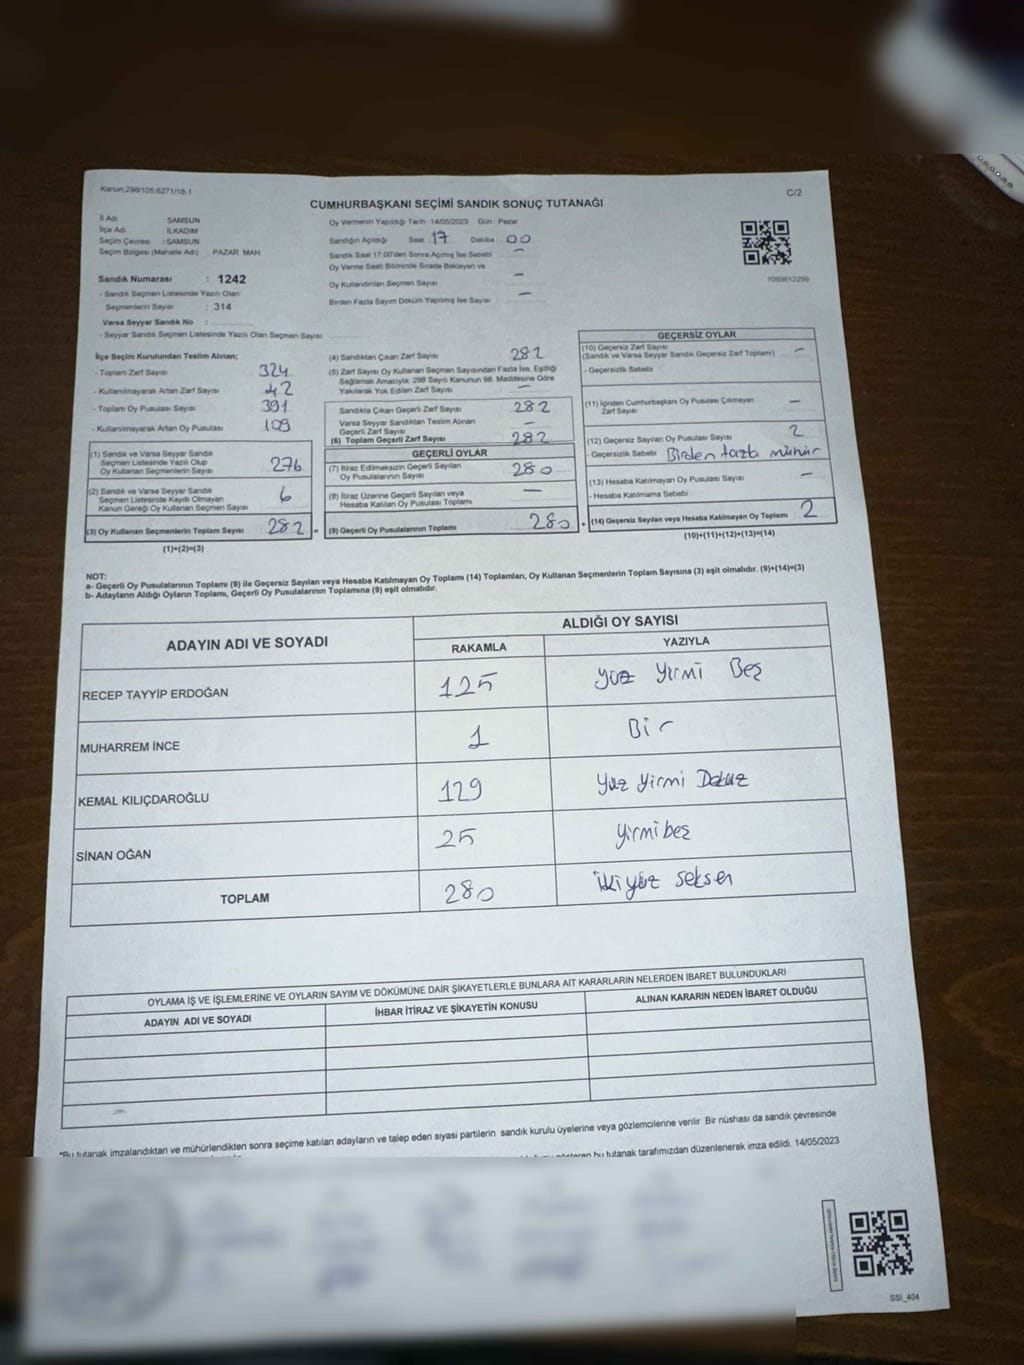 Kanun:298/105:6271/18-1
C/2
CUMHURBAŞKANI SEÇİMİ SANDIK SONUÇ TUTANAĞI
İl Adı : SAMSUN
İlçe Adı : İLKADIM
Seçim Çevresi : SAMSUN
Seçim Bölgesi (Mahalle Adı) : PAZAR MAH
Sandık Numarası : 1242
- Sandık Seçmen Listesinde Yazılı Olan
Seçmenlerin Sayısı : 314
Varsa Seyyar Sandık No :
- Seyyar Sandık Seçmen Listesinde Yazılı Olan Seçmen Sayısı:
Oy Vermenin Yapıldığı Tarih 14/05/2023 Gün : Pazar
Sandığın Açıldığı Saat : 17 Dakika : 00
Sandık Saat 17:00'den Sonra Açılmış İse Sebebi : -
Oy Verme Saati Bitiminde Sırada Bekleyen ve
Oy Kullandırılan Seçmen Sayısı : -
Birden Fazla Sayım Döküm Yapılmış İse Sayısı : -
1093612299
İlçe Seçim Kurulundan Teslim Alınan;
- Toplam Zarf Sayısı : 324
- Kullanılmayarak Artan Zarf Sayısı : 42
- Toplam Oy Pusulası Sayısı : 391
- Kullanılmayarak Artan Oy Pusulası : 109
(1) Sandık ve Varsa Seyyar Sandık
Seçmen Listesinde Yazılı Olup
Oy Kullanan Seçmenlerin Sayısı 276
(2) Sandık ve Varsa Seyyar Sandık
Seçmen Listesinde Kayıtlı Olmayan
Kanun Gereği Oy Kullanan Seçmen Sayısı 6
(3) Oy Kullanan Seçmenlerin Toplam Sayısı 282 =
(1)+(2)=(3)
(4) Sandıktan Çıkan Zarf Sayısı 282
(5) Zarf Sayısı Oy Kullanan Seçmen Sayısından Fazla İse, Eşitliği
Sağlamak Amacıyla, 298 Sayılı Kanunun 98. Maddesine Göre
Yakılarak Yok Edilen Zarf Sayısı -
Sandıkta Çıkan Geçerli Zarf Sayısı 282
Varsa Seyyar Sandıktan Teslim Alınan
Geçerli Zarf Sayısı -
(6) Toplam Geçerli Zarf Sayısı 282
GEÇERLİ OYLAR
(7) İtiraz Edilmeksizin Geçerli Sayılan
Oy Pusulasının Sayısı 280
(8) İtiraz Üzerine Geçerli Sayılan veya
Hesaba Katılan Oy Pusulası Toplamı -
(9) Geçerli Oy Pusulalarının Toplamı 280 +
GEÇERSİZ OYLAR
(10) Geçersiz Zarf Sayısı
(Sandık ve Varsa Seyyar Sandık Geçersiz Zarf Toplamı) -
- Geçersizlik Sebebi
(11) İçinden Cumhurbaşkanı Oy Pusulası Çıkmayan
Zarf Sayısı -
(12) Geçersiz Sayılan Oy Pusulası Sayısı 2
- Geçersizlik Sebebi Birden fazla mühür
(13) Hesaba Katılmayan Oy Pusulası Sayısı -
- Hesaba Katılmama Sebebi
(14) Geçersiz Sayılan veya Hesaba Katılmayan Oy Toplamı 2
(10)+(11)+(12)+(13)=(14)
NOT:
a- Geçerli Oy Pusulalarının Toplamı (9) ile Geçersiz Sayılan veya Hesaba Katılmayan Oy Toplamı (14) Toplamları, Oy Kullanan Seçmenlerin Toplam Sayısına (3) eşit olmalıdır. (9)+(14)=(3)
b- Adayların Aldığı Oyların Toplamı, Geçerli Oy Pusulalarının Toplamına (9) eşit olmalıdır.
ADAYIN ADI VE SOYADI
ALDIĞI OY SAYISI
RAKAMLA YAZIYLA
RECEP TAYYİP ERDOĞAN 125 yüz yirmi Beş
MUHARREM İNCE 1 Bir
KEMAL KILIÇDAROĞLU 129 yüz yirmi Dokuz
SİNAN OĞAN 25 yirmibeş
TOPLAM 280 ikiyüz seksen
OYLAMA İŞ VE İŞLEMLERİNE VE OYLARIN SAYIM VE DÖKÜMÜNE DAİR ŞİKAYETLERLE BUNLARA AİT KARARLARIN NELERDEN İBARET BULUNDUKLARI
ADAYIN ADI VE SOYADI İHBAR İTİRAZ VE ŞİKAYETİN KONUSU ALINAN KARARIN NEDEN İBARET OLDUĞU
"Bu tutanak imzalandıktan ve mühürlendikten sonra seçime katılan adayların ve talep eden siyasi partilerin sandık kurulu üyelerine veya gözlemcilerine verilir Bir nüshası da sandık çevresinde
gösteren bu tutanak tarafımızdan düzenlenerek imza edildi. 14/05/2023
SSI_404